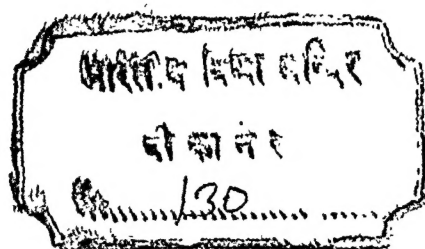 भारतीय विद्या मन्दिर
बीकानेर
130